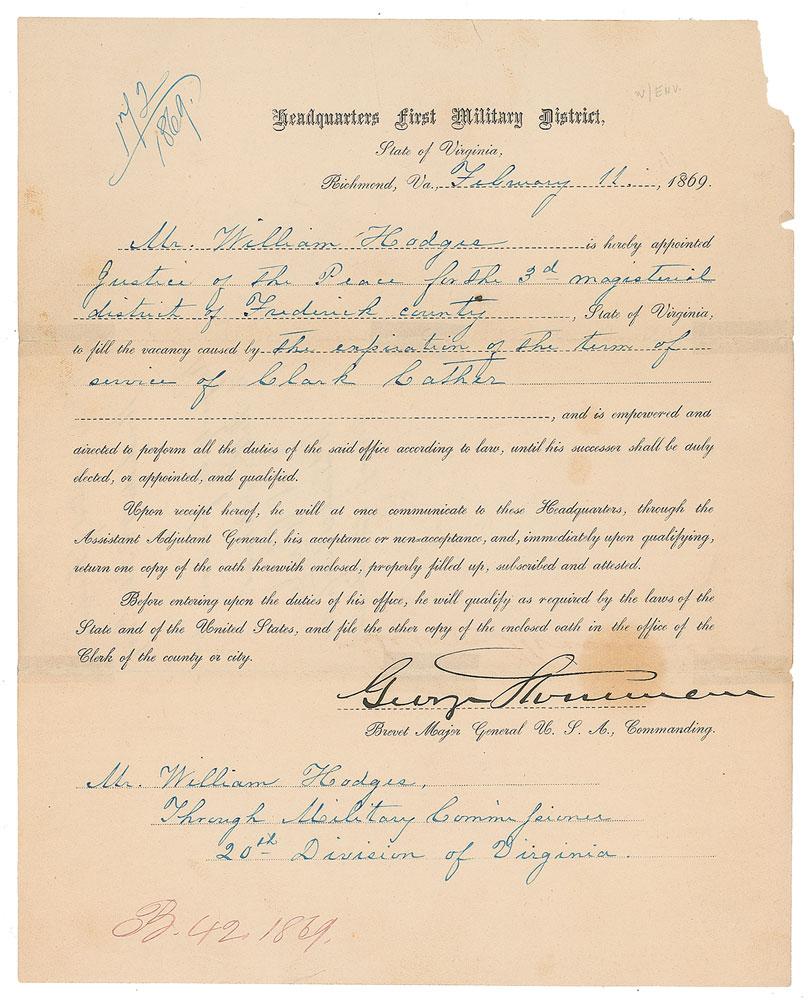 172/1869.
W/ENV.
Headquarters First Military District,
State of Virginia,
Richmond, Va., February 11., 1869.
Mr. William Hodges is hereby appointed
Justice of the Peace for the 3d magisterial
district of Frederick county, State of Virginia,
to fill the vacancy caused by the expiration of the term of
service of Clark Cather
, and is empowered and
directed to perform all the duties of the said office according to law, until his successor shall be duly
elected, or appointed, and qualified.
Upon receipt hereof, he will at once communicate to these Headquarters, through the
Assistant Adjutant General, his acceptance or non-acceptance, and, immediately upon qualifying,
return one copy of the oath herewith enclosed, properly filled up, subscribed and attested.
Before entering upon the duties of his office, he will qualify as required by the laws of the
State and of the United States, and file the other copy of the enclosed oath in the office of the
Clerk of the county or city.
George Stoneman
Brevet Major General U. S. A., Commanding.
Mr. William Hodges,
Through Military Commissioner
20th Division of Virginia.
B. 42. 1869.